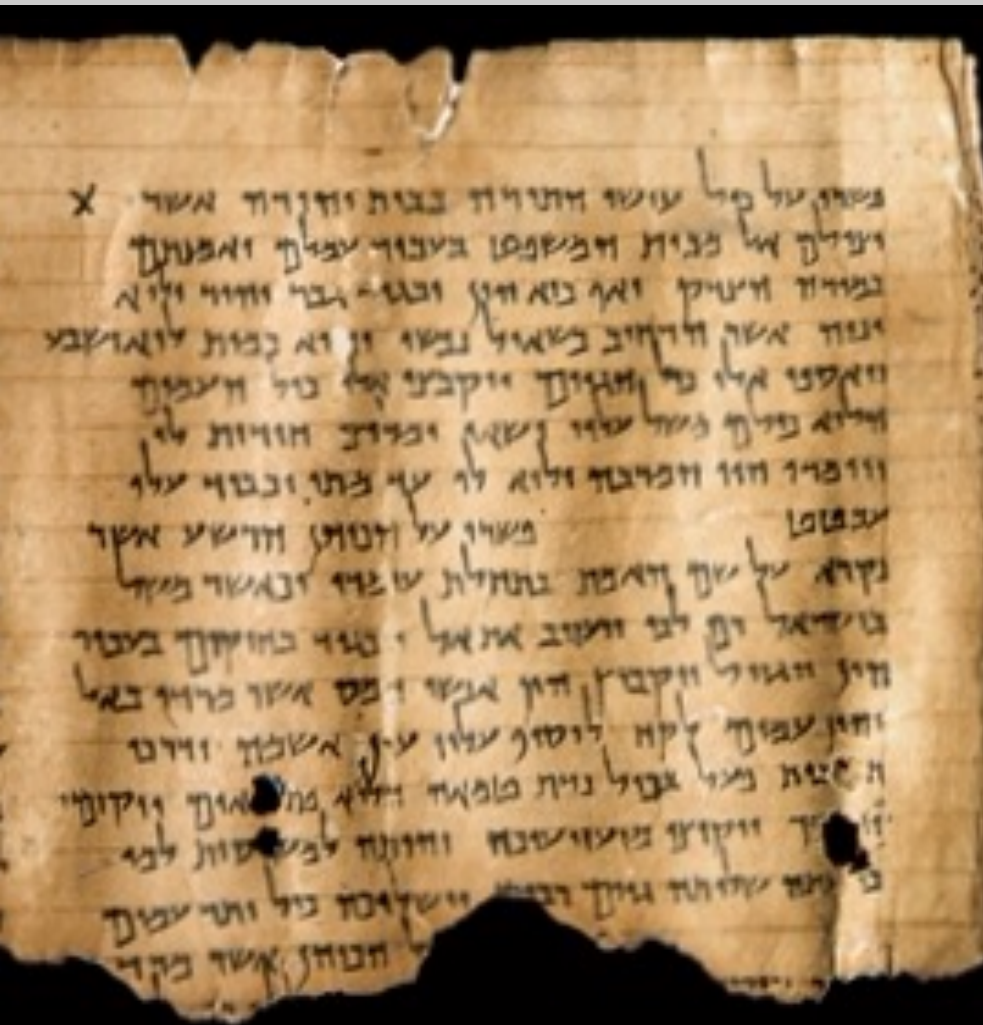 פשרו על כול עושי התורה בבית יהודה אשר X
יצילם אל מבית המשפט בעבור עמלם ואמנתם
במורה הצדק ואף כיא הון יבגוד גבר יהיר ולוא
ינוה אשר הרחיב כשאול נפשו והוא כמות לוא ישבע
ויאספו אלו כול הגוים ויקבצו אלו כול העמים
הלוא כולם משל עליו ישאו ומליצי חידות לו
ויומרו הוי המרבה ולוא לו עד מתי יכביד עלו
עבטט פשרו על הכוהן הרשע אשר
נקרא על שם האמת בתחלת עומדו וכאשר משל
בישראל רם לבו ויעזוב את אל ויבגוד בחוקים בעבור
הון ויגזול ויקבוץ הון אנשי חמס אשר מרדו באל
והון עמים לקח לוסיף עליו עון אשמה ודרכי
פעל בכול נדת טמאה הלוא ויקומו
ויקיצו מזעזיעיכה והיתה למו
שלותה גוים וישלוכה כול יתר עמים
הכוהן אשר מרד